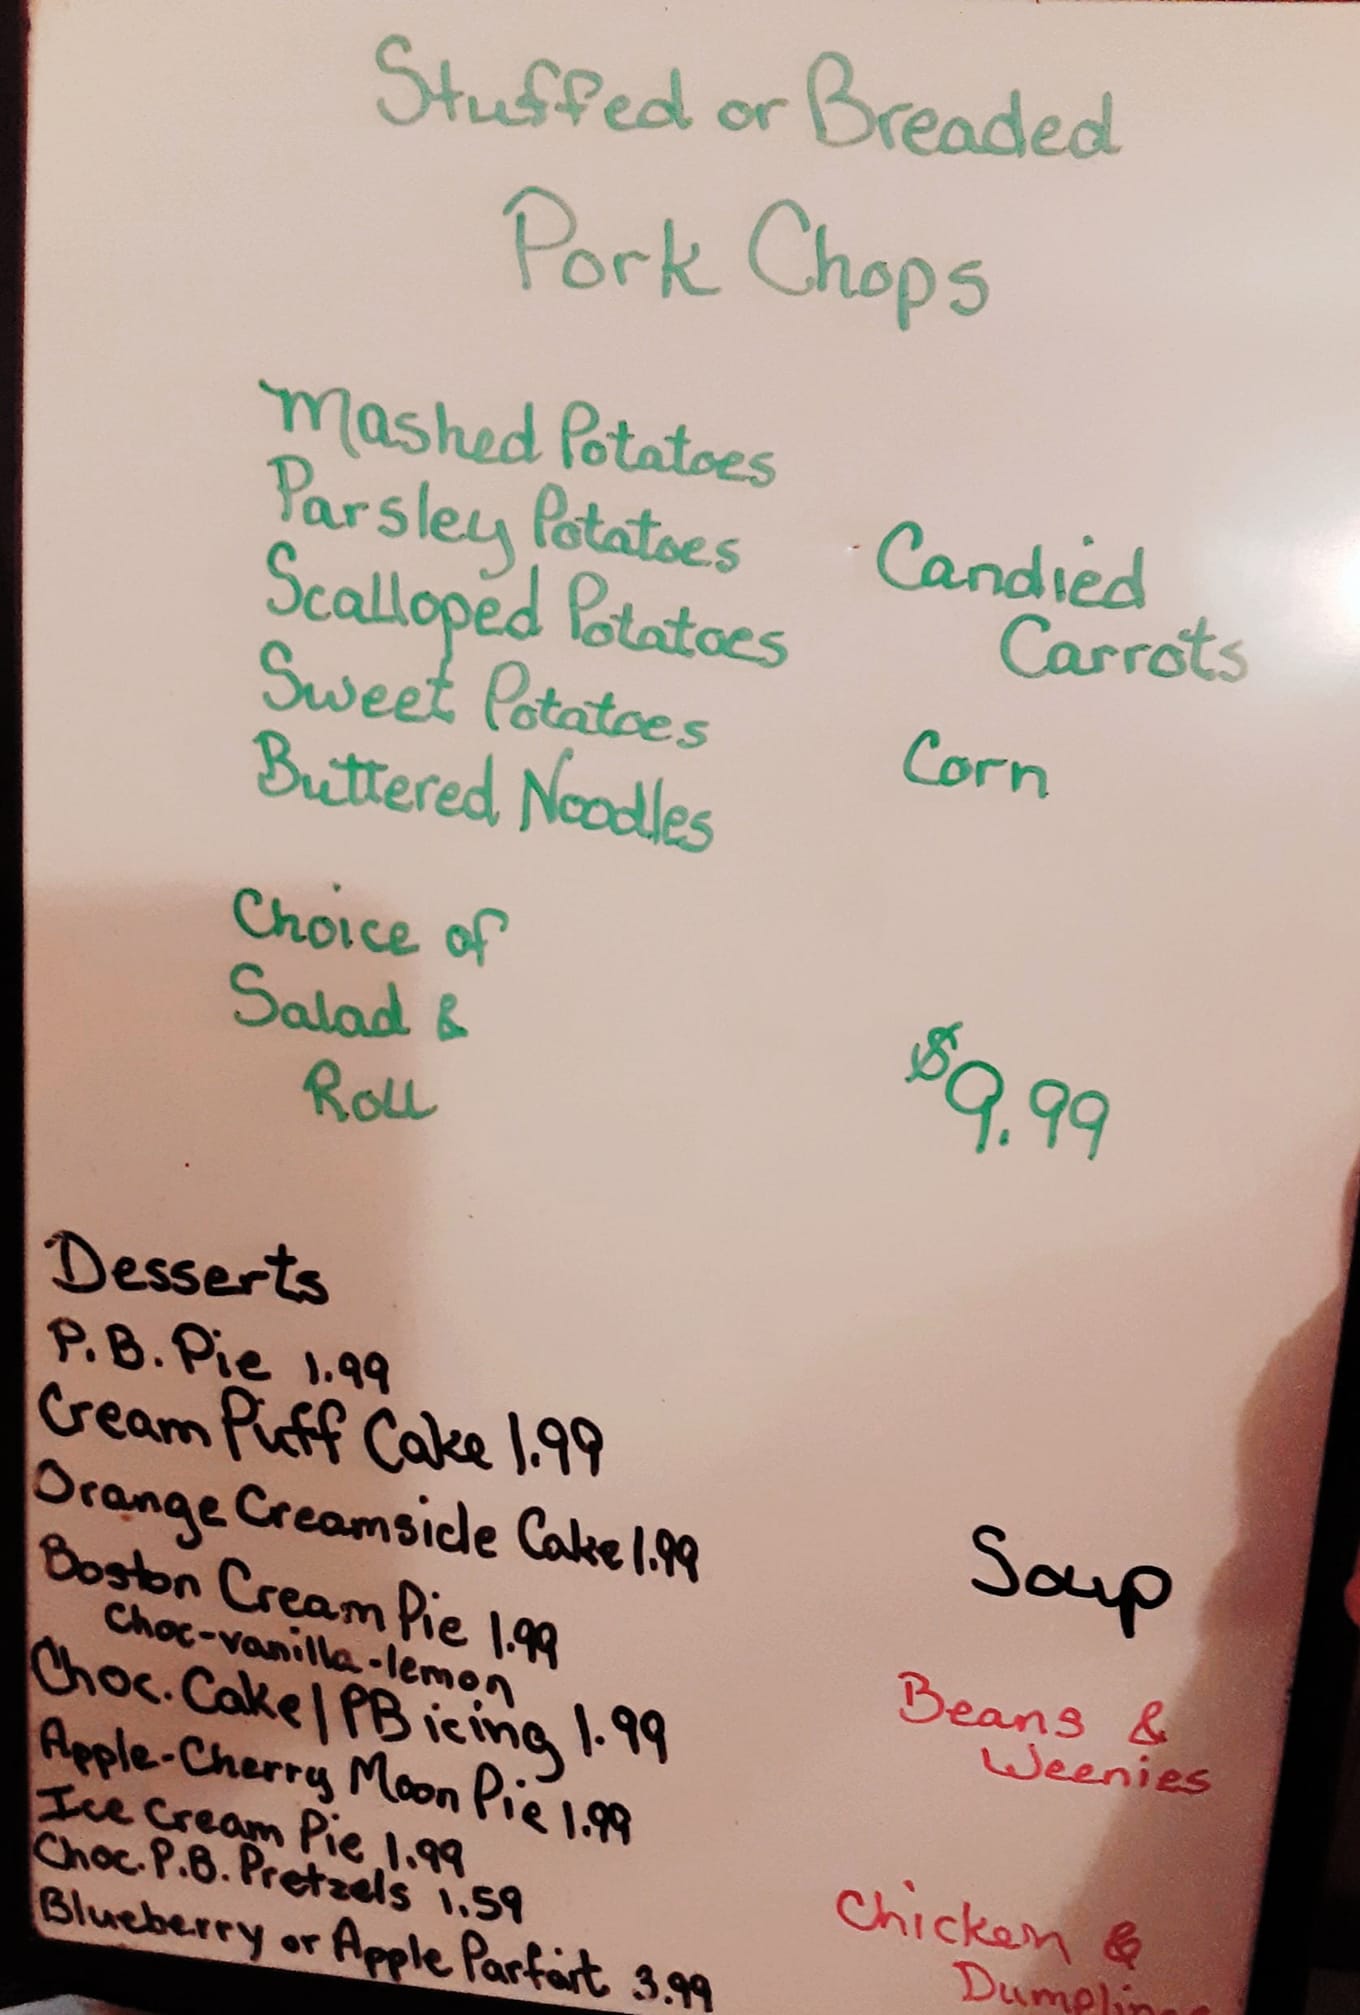 Stuffed or Breaded
Pork Chops
Mashed Potatoes
Parsley Potatoes
Scalloped Potatoes
Sweet Potatoes
Buttered Noodles
Candied
Carrots
Corn
Choice of
Salad &
Roll
$9.99
Desserts
P.B. Pie 1.99
Cream Puff Cake 1.99
Orange Creamsicle Cake 1.99
Boston Cream Pie 1.99
Choc-vanilla-lemon
Choc. Cake/PB icing 1.99
Apple-Cherry Moon Pie 1.99
Ice Cream Pie 1.99
Choc. P.B. Pretzels 1.59
Blueberry or Apple Parfait 3.99
Soup
Beans &
Weenies
Chicken &